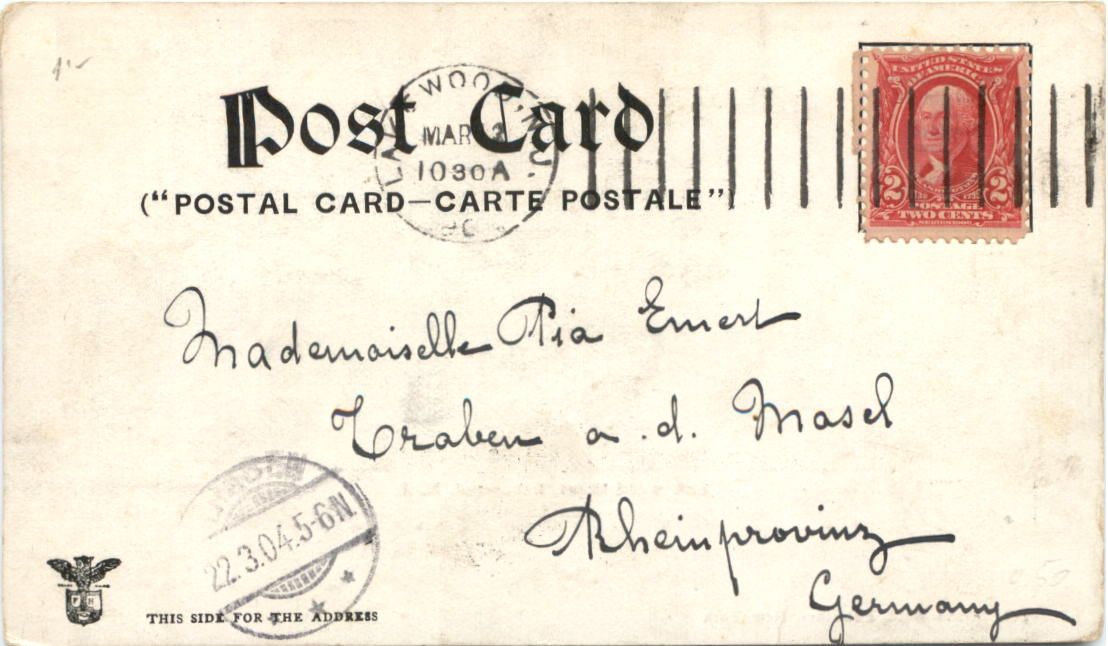 Post Card
("POSTAL CARD—CARTE POSTALE")
LAKEWOOD, N.J.
MAR
1030A
UNITED STATES
OF AMERICA
2 2
WASHINGTON
POSTAGE
TWO CENTS
SERIES 1902
Mademoiselle Pia Emert
Traben a.d. Masel
Rheinprovinz
Germany
22.3.04.5-6N
THIS SIDE FOR THE ADDRESS